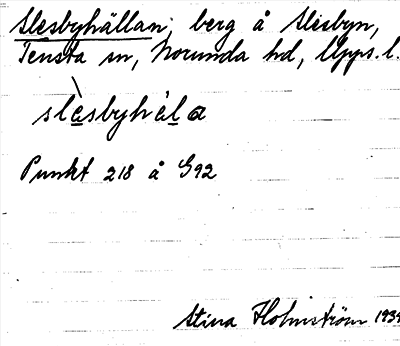 Slesbyhällan, berg å Slesbyn,
Tensta sn, Norunda hd, Upps. l.
slèsbyhàla
Punkt 218 å G92
Stina Holmström 1934